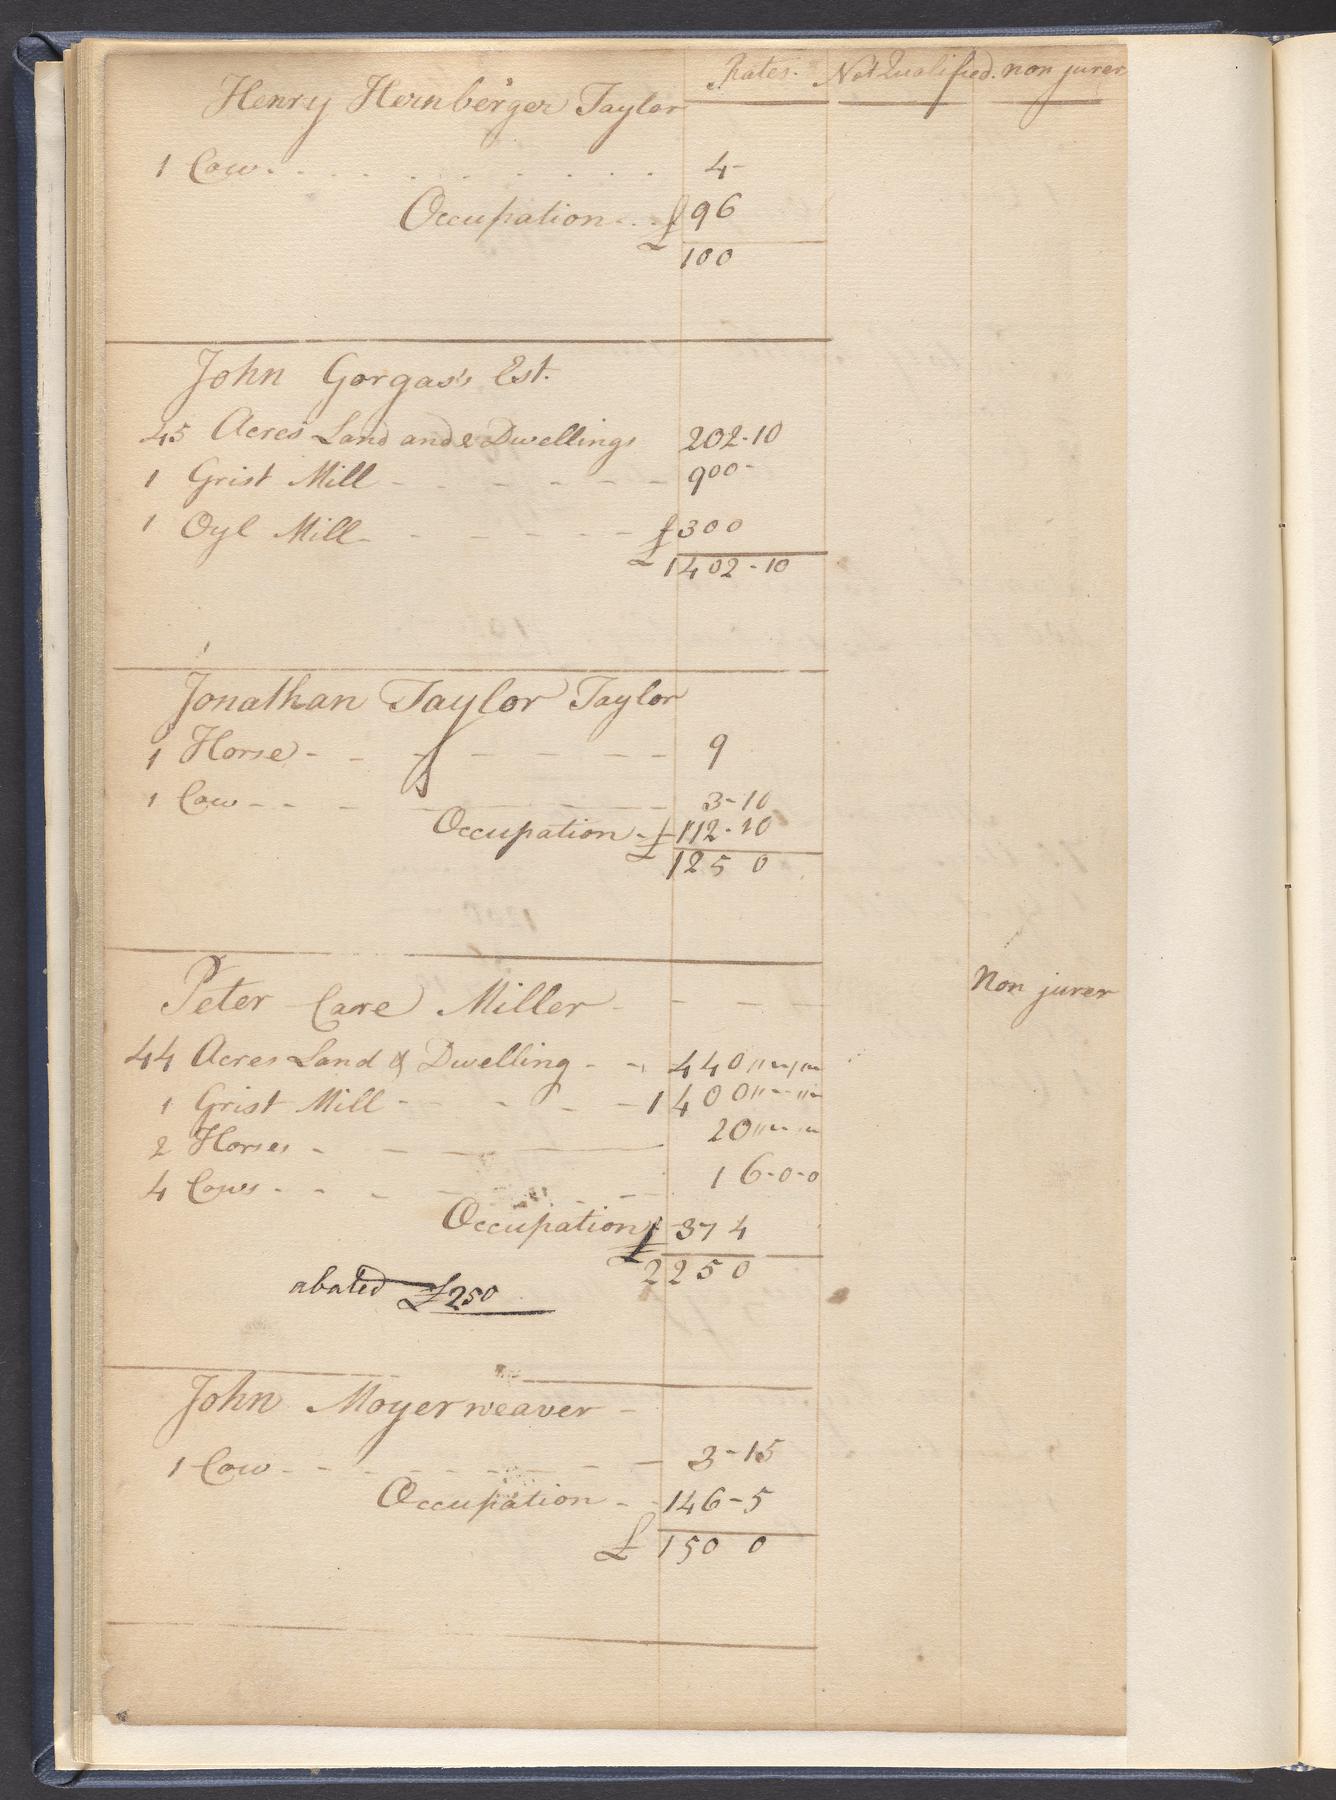 Rates. Not Qualified. non jurer
Henry Hernberger Taylor
1 Cow. . . . . . . . . . . 4-
Occupation . . . £ 96
£ 100
John Gorgas's Est.
45 Acres Land and 2 Dwellings 202-10
1 Grist Mill - - - - - - 900-
1 Oyl Mill - - - - - - £ 300
£ 1402-10
Jonathan Taylor Taylor
1 Horse - - - - - - - 9
1 Cow - - - - - - - 3-10
Occupation - £ 112-10
£ 125 0
Peter Care Miller - - - - Non jurer
44 Acres Land & Dwelling - - 440
1 Grist Mill - - - - - 1400
2 Horses - - - - 20
4 Cows - - - - - - 16-0-0
Occupation £ 374
£ 2250
abated £250
John Moyer weaver -
1 Cow - - - - - - - - 3-15
Occupation - - 146-5
£ 150 0